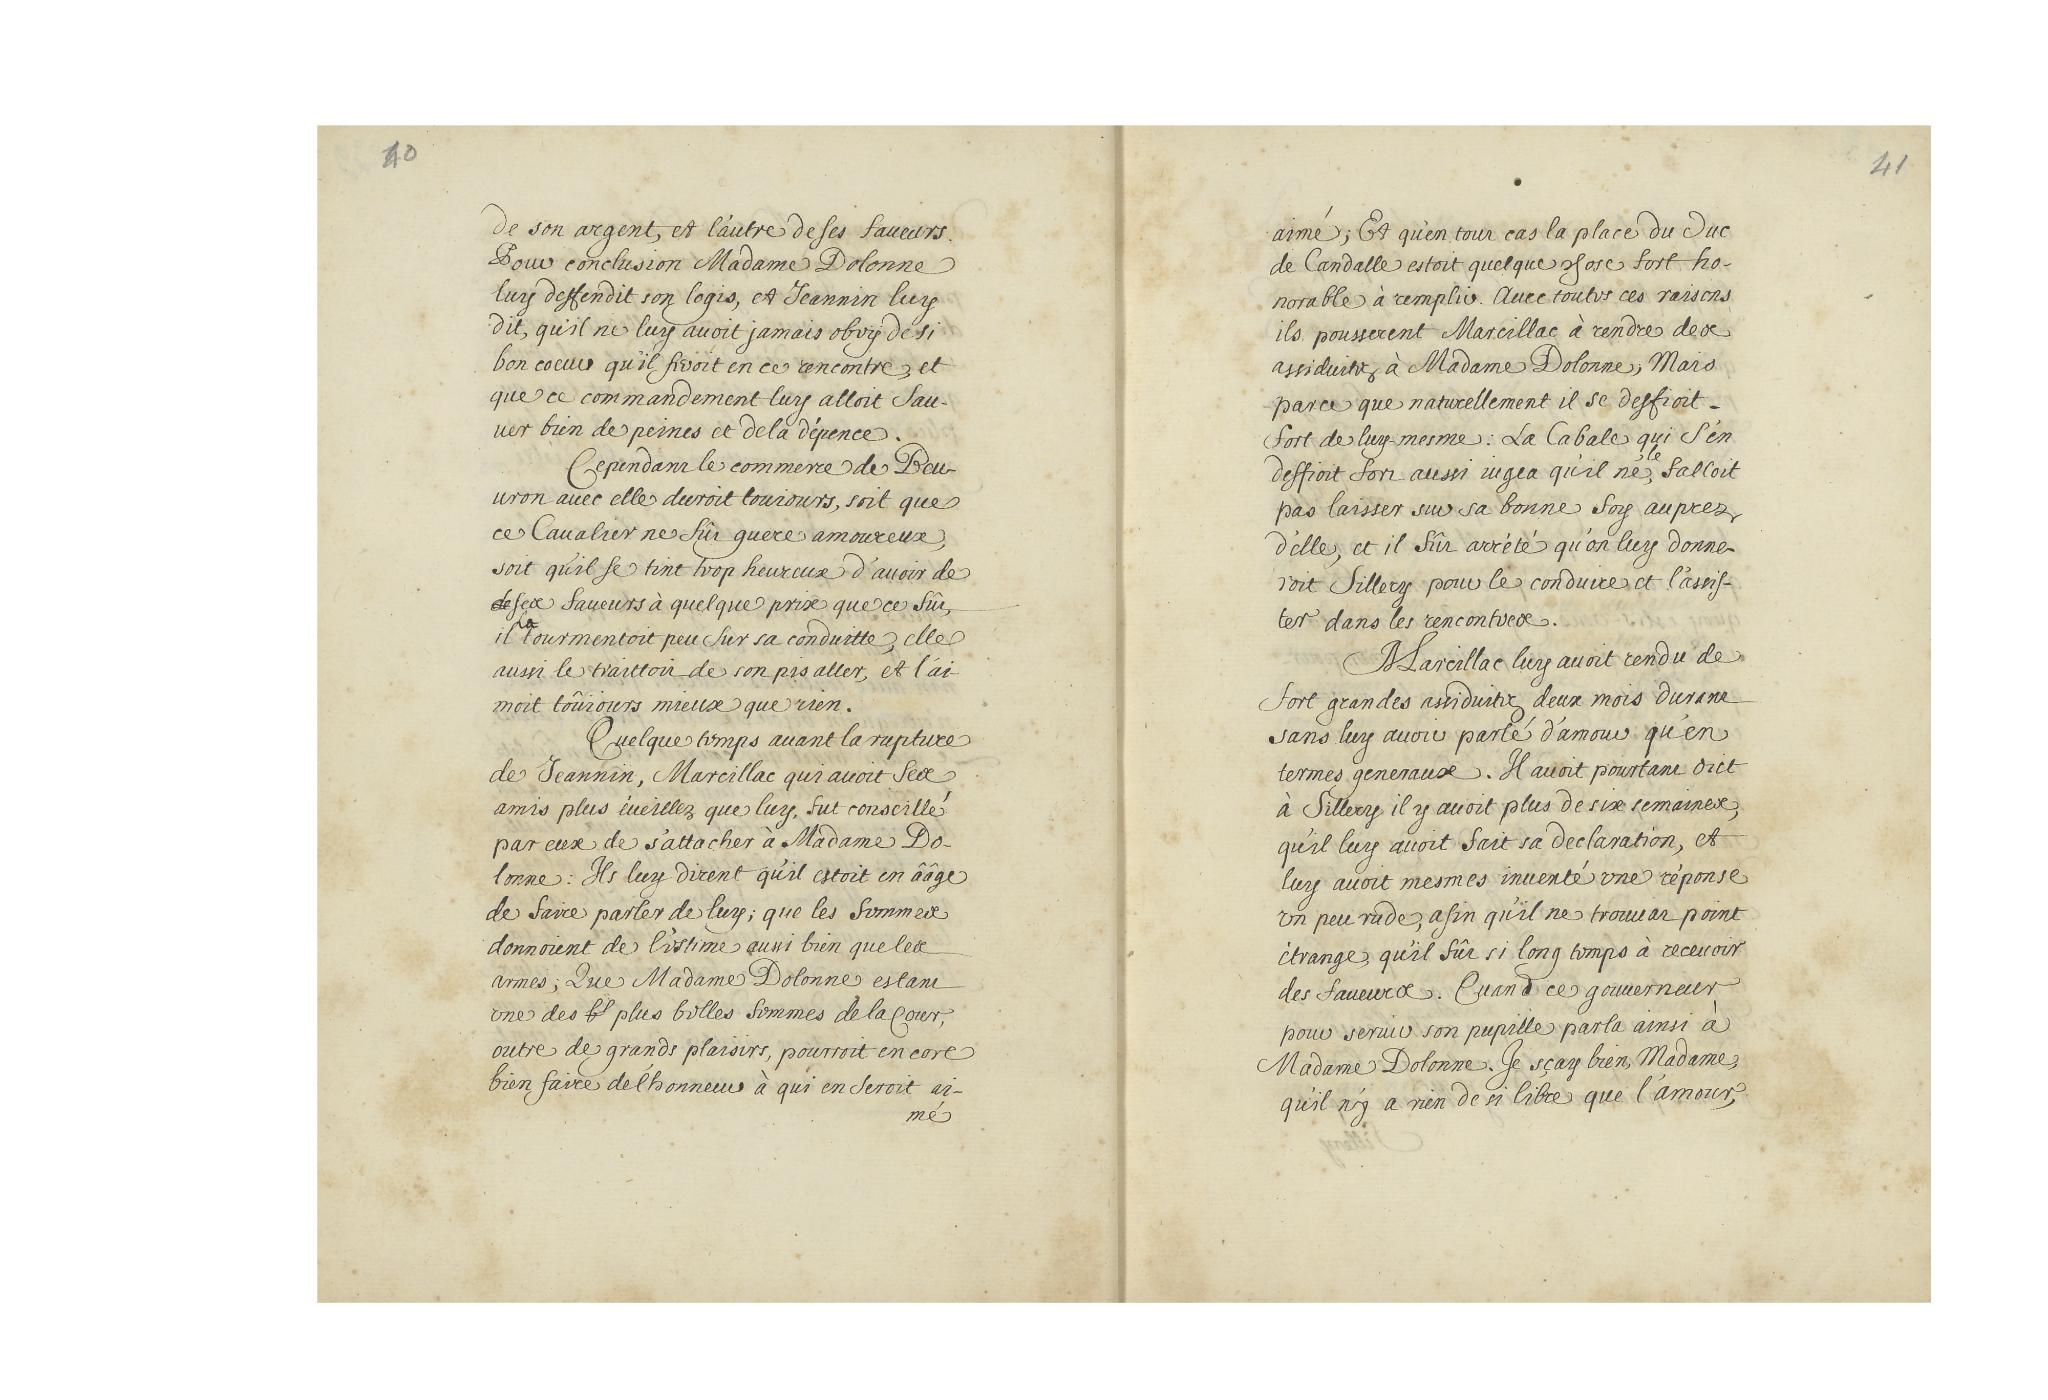 40
de son argent, et l'autre de ses faueurs.
Pour conclusion Madame Dolonne
luy deffendit son logis, et Jeannin luy
dit, qu'il ne luy auoit jamais obey de si
bon coeur qu'il feroit en ce rencontre, et
que ce commandement luy alloit sau-
uer bien de peines et de la dépence.
Cependant le commerce de Beu-
uron auec elle duroit touiours, soit que
ce Caualier ne fût guere amoureux,
soit qu'il se tint trop heureux d'auoir de
ses faueurs à quelque prix que ce fût,
il la tourmentoit peu sur sa conduitte, elle
aussi le traittoit de son pis aller, et l'ai-
moit toûiours mieux que rien.
Quelque temps auant la rupture
de Jeannin, Marcillac qui auoit ses
amis plus éueillez que luy, fut conseillé
par eux de s'attacher à Madame Do-
lonne: Ils luy dirent qu'il estoit en ââge
de faire parler de luy; que les femmes
donnoient de l'estime aussi bien que les
armes; Que Madame Dolonne estant
vne des plus belles femmes de la Cour,
outre de grands plaisirs, pourroit encore
bien faire de l'honneur à qui en seroit ai-
mé
41
aimé; Et qu'en tout cas la place du Duc
de Candalle estoit quelque chose fort ho-
norable à remplir. Auec toutes ces raisons
ils pousserent Marcillac à rendre des
assiduitez à Madame Dolonne; Mais
parce que naturellement il se deffioit
fort de luy-mesme: La Cabale qui s'en
deffioit fort aussi iugea qu'il ne le falloit
pas laisser sur sa bonne foy auprez
d'elle, et il fût arrété qu'on luy donne-
roit Sillery pour le conduire et l'assis-
ter dans les rencontres.
Marcillac luy auoit rendu de
fort grandes assiduitez deux mois durant
sans luy auoir parlé d'amour qu'en
termes generaux. Il auoit pourtant dict
à Sillery il y auoit plus de six semaines,
qu'il luy auoit fait sa declaration, et
luy auoit mesmes inuenté vne réponse
vn peu rude, afin qu'il ne trouuat point
étrange, qu'il fût si long temps à receuoir
des faueurs. Quand ce gouuerneur
pour seruir son pupille parla ainsi à
Madame Dolonne. Je sçay bien, Madame,
qu'il n'y a rien de si libre que l'amour,